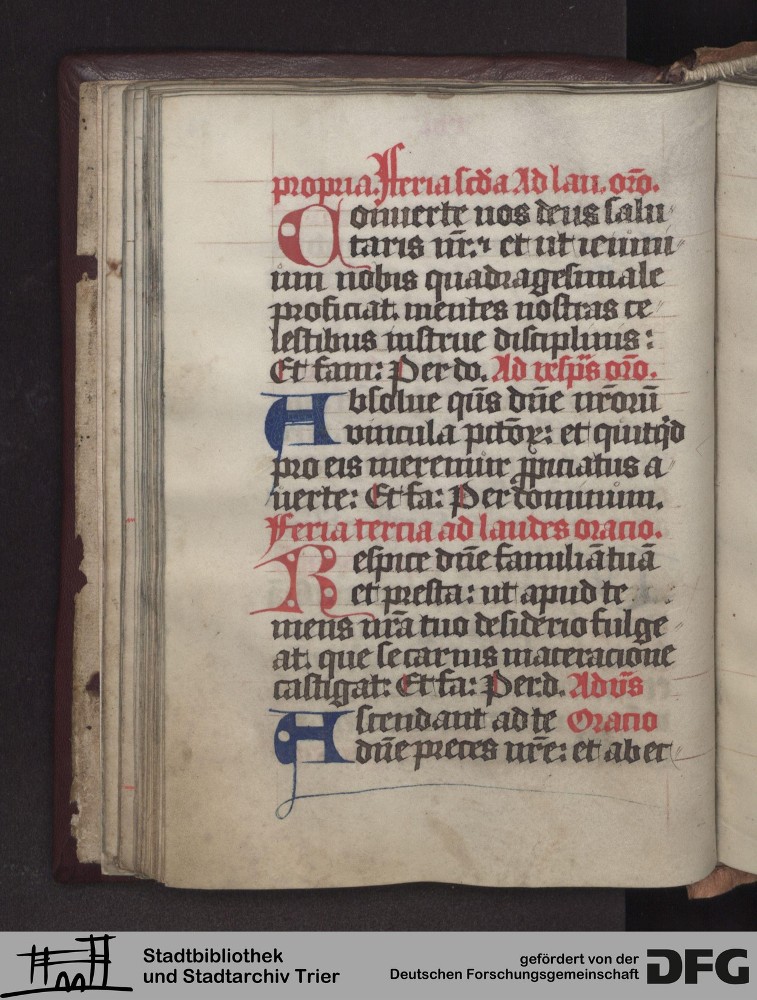 propria. Feria scd̄a Ad lau. or̄o.
Conuerte nos deus salu
taris nr̄: et ut ieiuni
um nobis quadragesimale
proficiat. mentes nostras ce
lestibus instrue disciplinis:
Et fam: Per do. Ad vesp̄s or̄o.
Absolue qs̄ dn̄e nr̄orū
vincula pctōꝝ: et quitq̇d
pro eis meremur ꝓpiciatus a
uerte: Et fa: Per dominum.
Feria tercia ad laudes oracio.
Respice dn̄e familiā tuā
et presta: ut apud te
mens nr̄a tuo desiderio fulge
at. que se carnis maceracione
castigat: Et fa: Per d. Ad vs̄
Ascendant ad te Oracio
dn̄e preces nr̄e: et ab ec
Stadtbibliothek
und Stadtarchiv Trier
gefördert von der
Deutschen Forschungsgemeinschaft
DFG